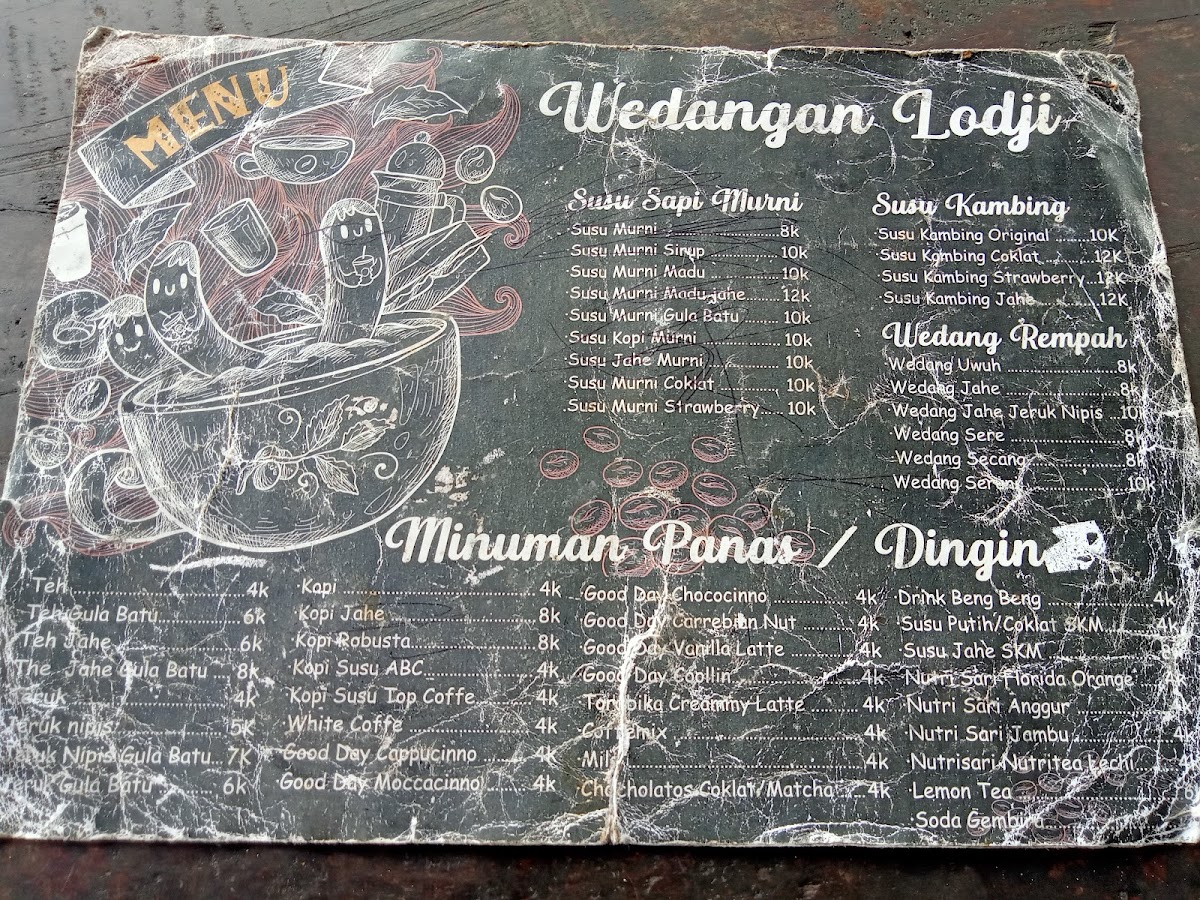 MENU
Wedangan Lodji
Susu Sapi Murni
Susu Murni ........................ 8k
Susu Murni Sirup ............... 10k
Susu Murni Madu ............... 10k
Susu Murni Madu jahe........ 12k
Susu Murni Gula Batu ........ 10k
Susu Kopi Murni ................. 10k
Susu Jahe Murni ................. 10k
Susu Murni Coklat .............. 10k
Susu Murni Strawberry..... 10k
Susu Kambing
Susu Kambing Original .......10K
Susu Kambing Coklat ...........12K
Susu Kambing Strawberry...12K
Susu Kambing Jahe .............12K
Wedang Rempah
Wedang Uwuh ......................8k
Wedang Jahe .......................8k
Wedang Jahe Jeruk Nipis ..10k
Wedang Sere .......................8k
Wedang Secang ....................8k
Wedang Sereng ...................10k
Minuman Panas / Dingin
Teh ................................ 4k
Teh Gula Batu ................. 6k
Teh Jahe ........................ 6k
The Jahe Gula Batu .... 8k
Jeruk ............................. 4k
Jeruk nipis ..................... 5K
Jeruk Nipis Gula Batu... 7K
Jeruk Gula Batu ............ 6k
Kopi ........................................ 4k
Kopi Jahe ................................ 8k
Kopi Robusta............................ 8k
Kopi Susu ABC......................... 4k
Kopi Susu Top Coffe ............... 4k
White Coffe ............................. 4k
Good Day Cappucinno ............. 4k
Good Day Moccacinno ............. 4k
Good Day Chococinno ............... 4k
Good Day Carrebian Nut ......... 4k
Good Day Vanilla Latte ............ 4k
Good Day Coollin ....................... 4k
Torabika Creammy Latte ......... 4k
Coffemix .................................... 4k
Milo ............................................ 4k
Chocholatos Coklat/Matcha ..... 4k
Drink Beng Beng .................... 4k
Susu Putih/Coklat SKM .......... 4k
Susu Jahe SKM
Nutri Sari Florida Orange
Nutri Sari Anggur ................... 4k
Nutri Sari Jambu .................... 4k
Nutrisari Nutritea Lechi
Lemon Tea
Soda Gembira